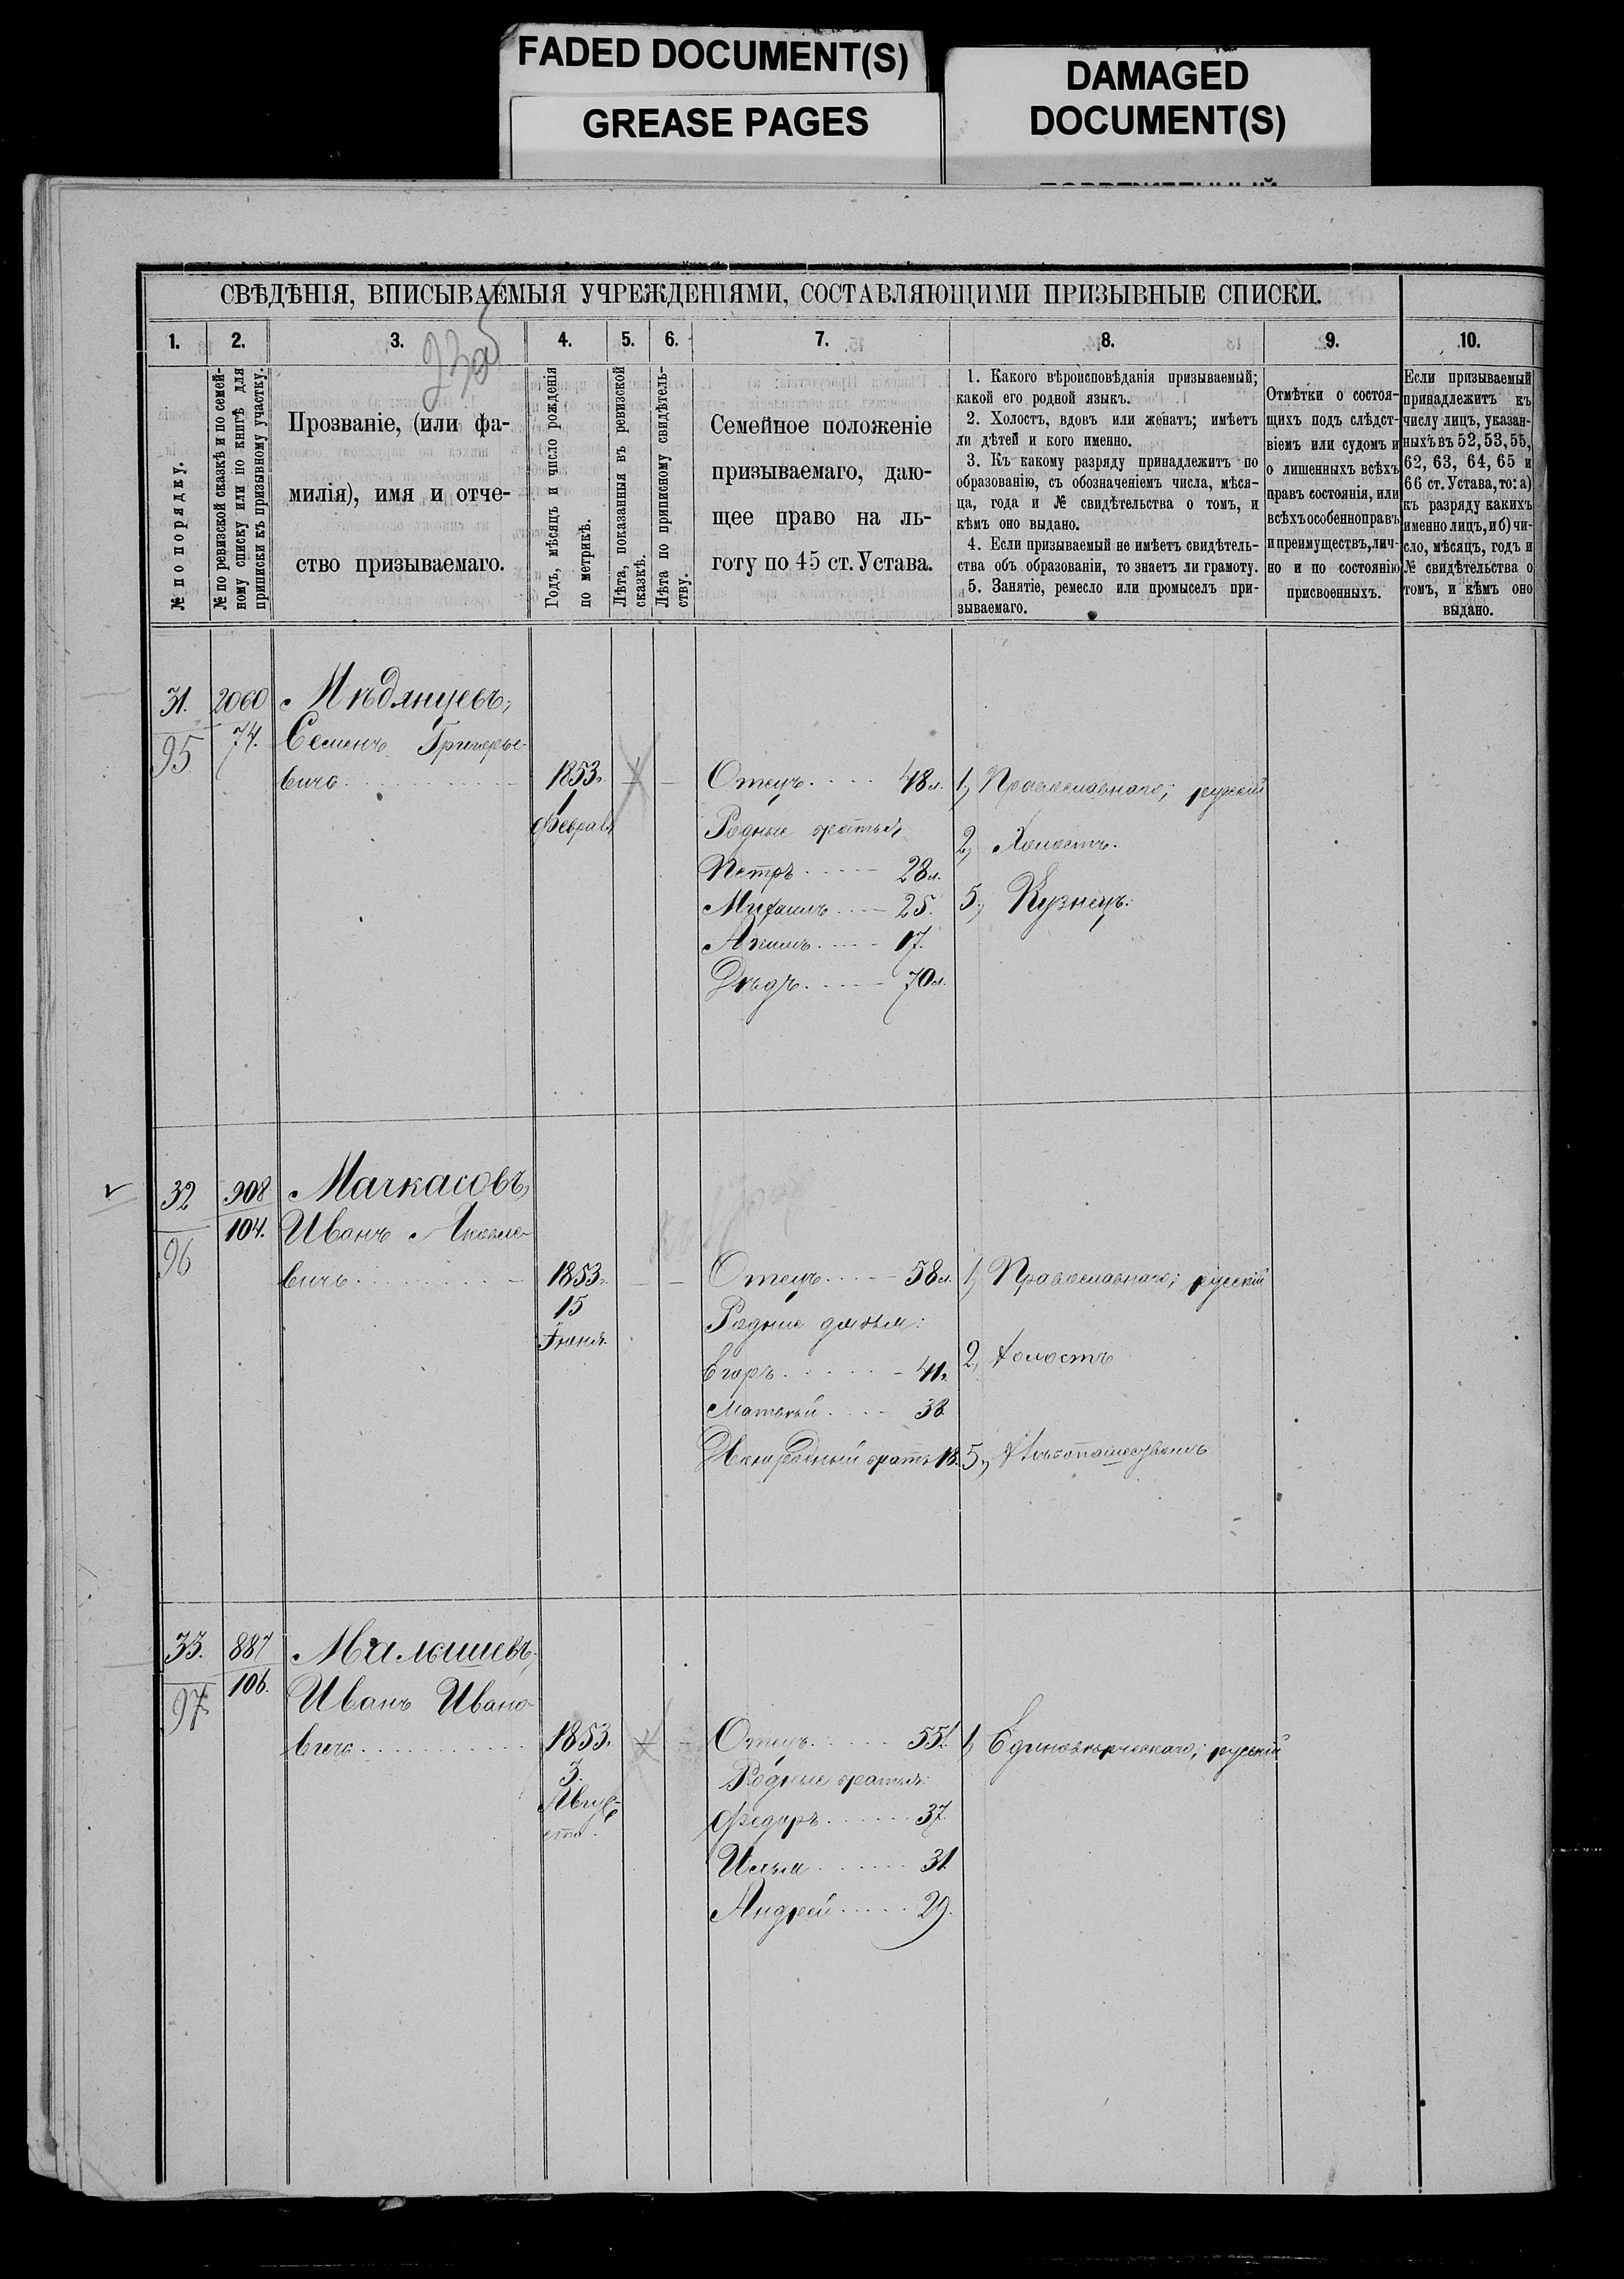 FADED DOCUMENT(S)
GREASE PAGES
DAMAGED
DOCUMENT(S)
СВѢДѢНІЯ, ВПИСЫВАЕМЫЯ УЧРЕЖДЕНІЯМИ, СОСТАВЛЯЮЩИМИ ПРИЗЫВНЫЕ СПИСКИ.
1. 2. 3. 4. 5. 6. 7. 8. 9. 10.
№ по порядку.
№ по ревизской сказкѣ и по семей-
ному списку или по книгѣ для
приписки къ призывному участку.
Прозваніе, (или фа-
милія), имя и отче-
ство призываемаго.
Годъ, мѣсяцъ и число рожденія
по метрикѣ.
Лѣта, показанныя въ ревизской
сказкѣ.
Лѣта по приписному свидѣтель-
ству.
Семейное положеніе
призываемаго, даю-
щее право на ль-
готу по 45 ст. Устава.
1. Какого вѣроисповѣданія призываемый;
какой его родной языкъ.
2. Холостъ, вдовъ или женатъ; имѣетъ
ли дѣтей и кого именно.
3. Къ какому разряду принадлежитъ по
образованію, съ обозначеніемъ числа, мѣся-
ца, года и № свидѣтельства о томъ, и
кѣмъ оно выдано.
4. Если призываемый не имѣетъ свидѣтель-
ства объ образованіи, то знаетъ ли грамоту.
5. Занятіе, ремесло или промыселъ при-
зываемаго.
Отмѣтки о состоя-
щихъ подъ слѣдст-
віемъ или судомъ и
о лишенныхъ всѣхъ
правъ состоянія, или
всѣхъ особенно правъ
и преимуществъ, лич-
но и по состоянію
присвоенныхъ.
Если призываемый
принадлежитъ къ
числу лицъ, указан-
ныхъ въ 52, 53, 55,
62, 63, 64, 65 и
66 ст. Устава, то: а)
къ разряду какихъ
именно лицъ, и б) чи-
сло, мѣсяцъ, годъ и
№ свидѣтельства о
томъ, и кѣмъ оно
выдано.
31. 2060 Мѣдянцевъ,
95 74. Семенъ Григорье-
вичъ 1853. Отецъ 48 л. 1, Православнаго; русскій
1
Феврал. Родные братья 2, Холостъ.
Петръ 28 л.
Михаилъ 25. 5, Кузнецъ.
Акимъ 17.
Дѣдъ 70 л.
32 908 Мачкасовъ,
96 104. Иванъ Яковле-
вичъ 1853. Отецъ 58 л. 1, Православнаго; русскій
15 Родные
Іюня. 2, Холостъ
Егоръ 41.
Матвей 38
Двоюродный братъ 18. 5, Хлѣбопашествомъ
33. 887 Малышевъ,
97 106. Иванъ Ивано-
вичъ 1853. Отецъ 55 л. 1, Единовѣрческаго; русскій
3. Родные братья:
Авгу-
ста. Федоръ 37.
Илья 31
Андрей 29.